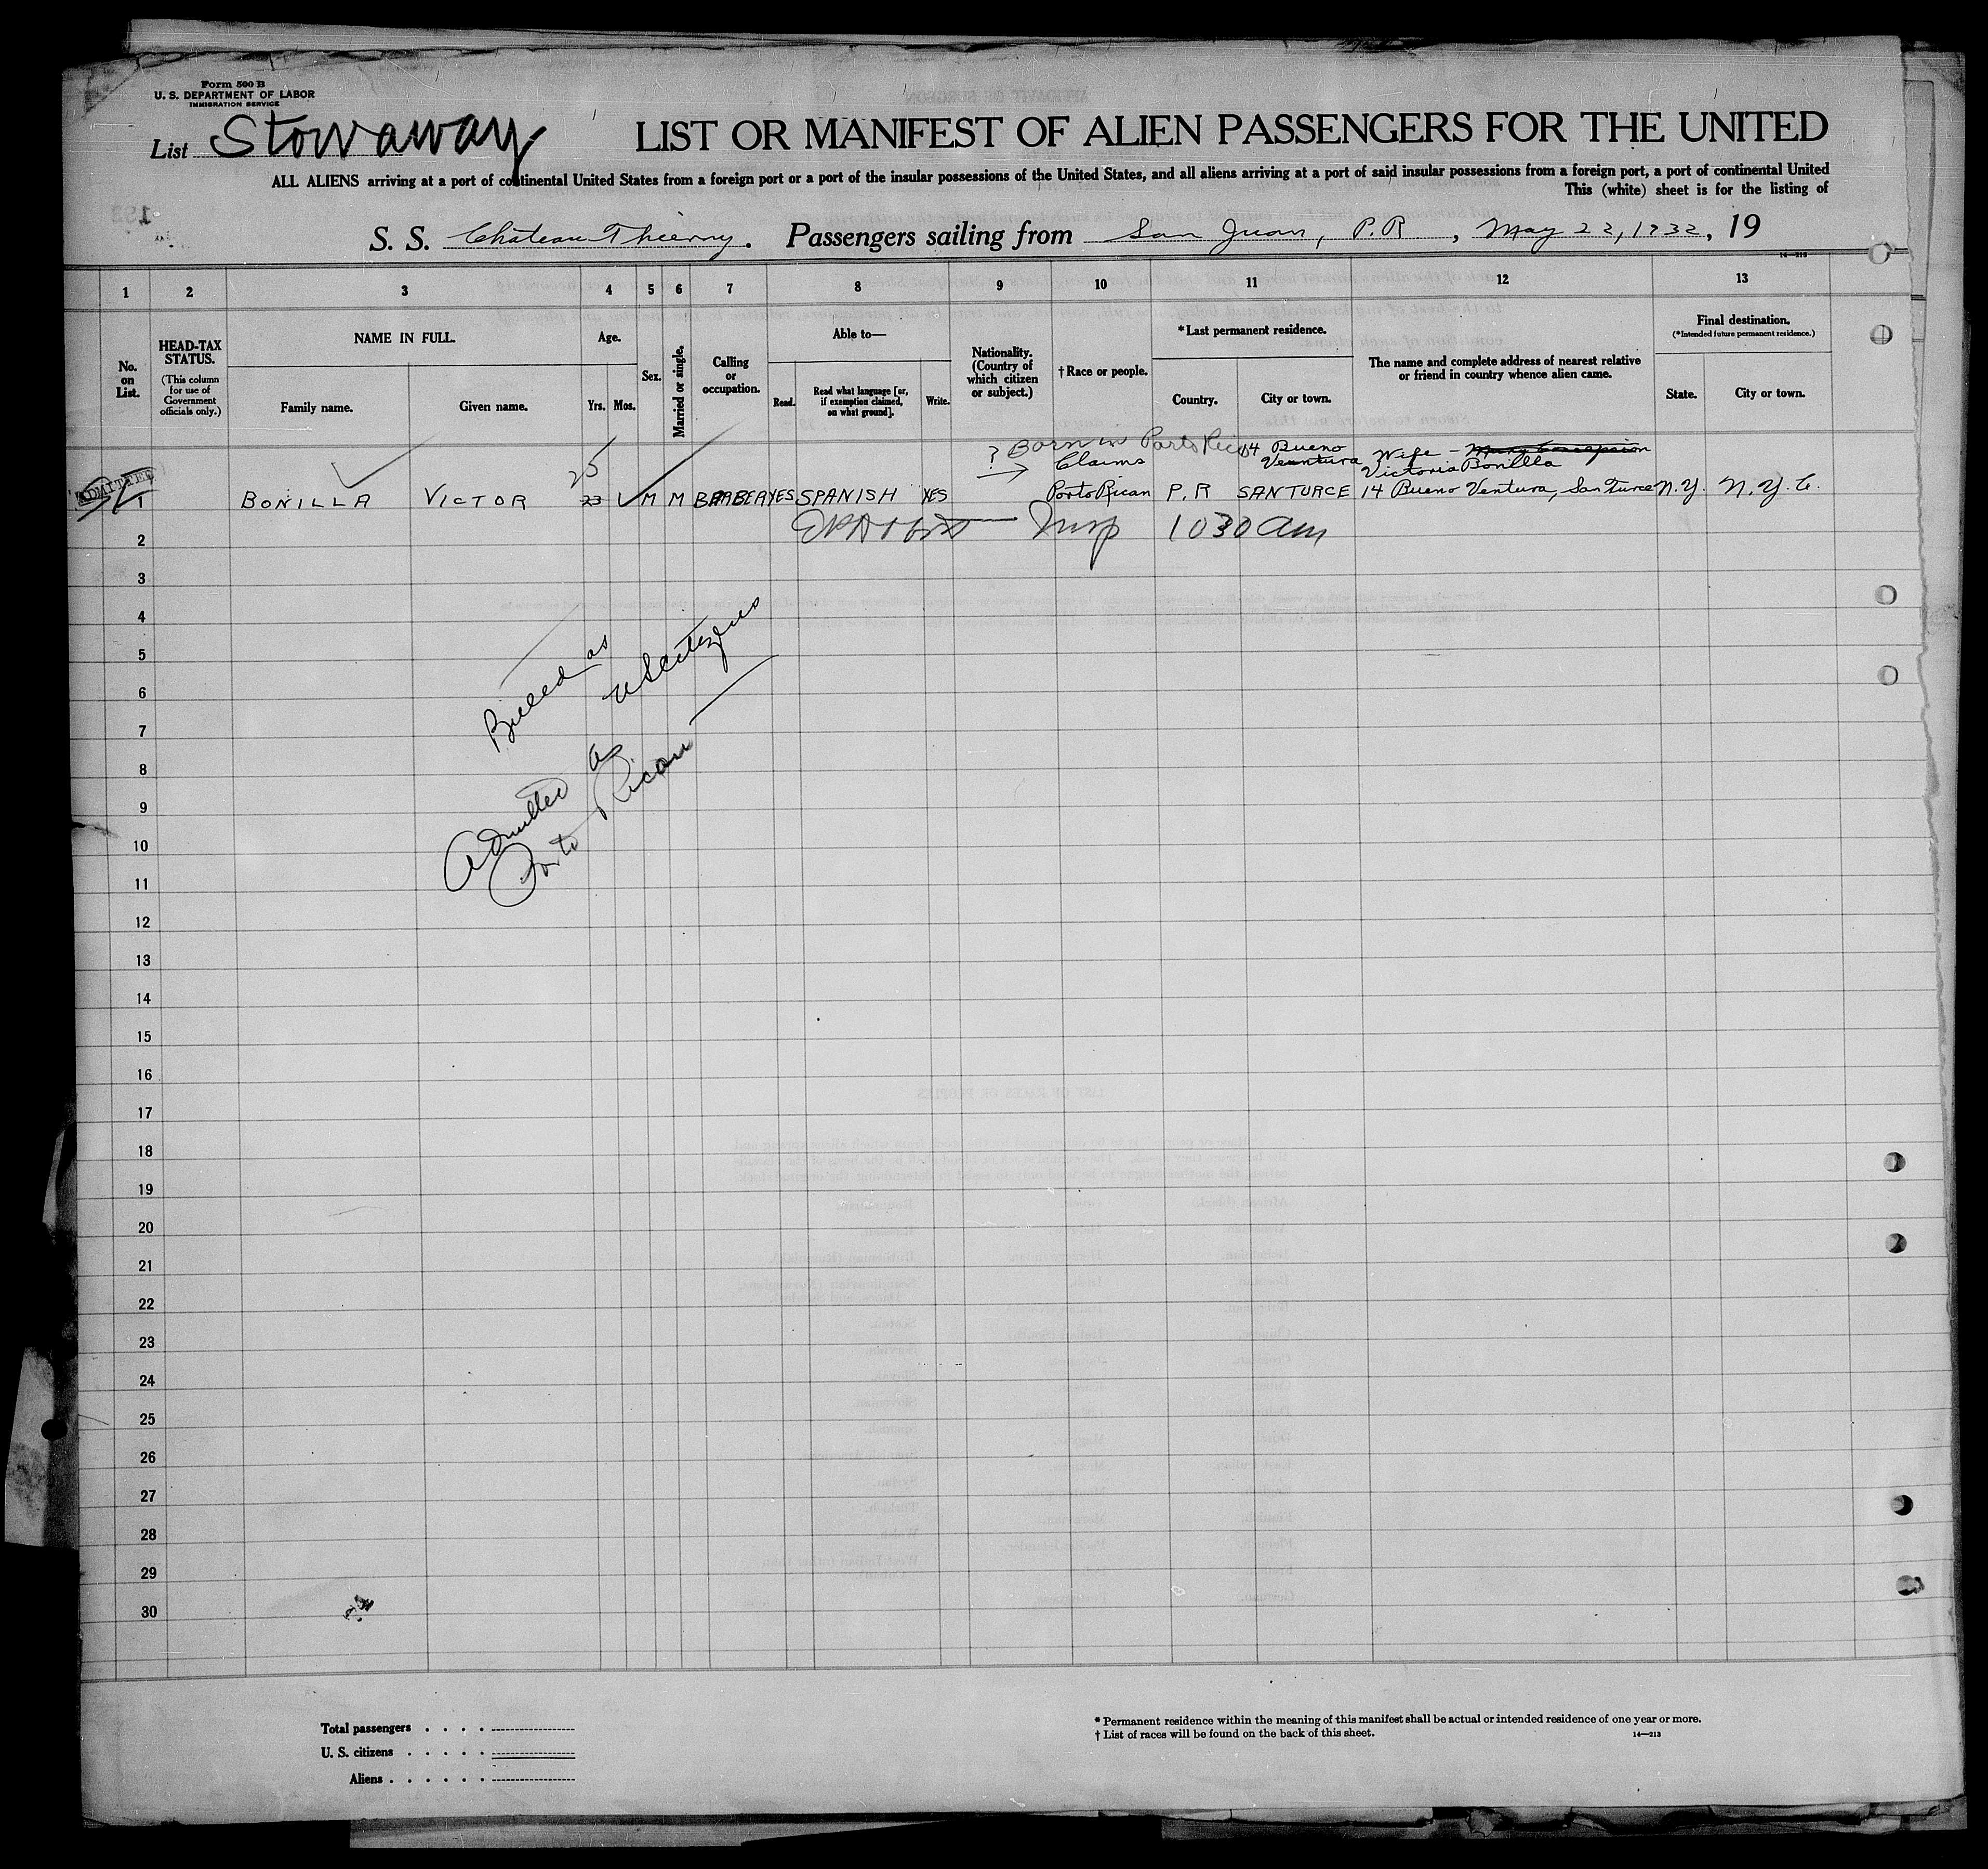 Form 500 B
U. S. DEPARTMENT OF LABOR
IMMIGRATION SERVICE
List Stowaway
LIST OR MANIFEST OF ALIEN PASSENGERS FOR THE UNITED
ALL ALIENS arriving at a port of continental United States from a foreign port or a port of the insular possessions of the United States, and all aliens arriving at a port of said insular possessions from a foreign port, a port of continental United
This (white) sheet is for the listing of
S. S. Chateau Thierry. Passengers sailing from San Juan, P.R, May 22, 1932, 19
14—213
1 2 3 4 5 6 7 8 9 10 11 12 13
No. on List.
HEAD-TAX STATUS.
(This column for use of Government officials only.)
NAME IN FULL.
Family name. Given name.
Age.
Yrs. Mos.
Sex.
Married or single.
Calling or occupation.
Able to—
Read. Read what language [or, if exemption claimed, on what ground]. Write.
Nationality. (Country of which citizen or subject.)
† Race or people.
* Last permanent residence.
Country. City or town.
The name and complete address of nearest relative or friend in country whence alien came.
Final destination.
(* Intended future permanent residence.)
State. City or town.
? Born in Porto Rico 14 Bueno
Claims Ventura Wife -
25 Victoria Bonilla
ADMITTED
1 BONILLA VICTOR 23 M M BARBER YES SPANISH YES Porto Rican P.R SANTURCE 14 Bueno Ventura, Santurce N.Y. N.Y.C.
1030 am
2
3
4
5
6
7
8
9
10
11
12
13
14
15
16
17
18
19
20
21
22
23
24
25
26
27
28
29
30
Billed as
US citizens
Admitted as
Porto Rican
Total passengers
U. S. citizens
Aliens
* Permanent residence within the meaning of this manifest shall be actual or intended residence of one year or more.
† List of races will be found on the back of this sheet.
14—213